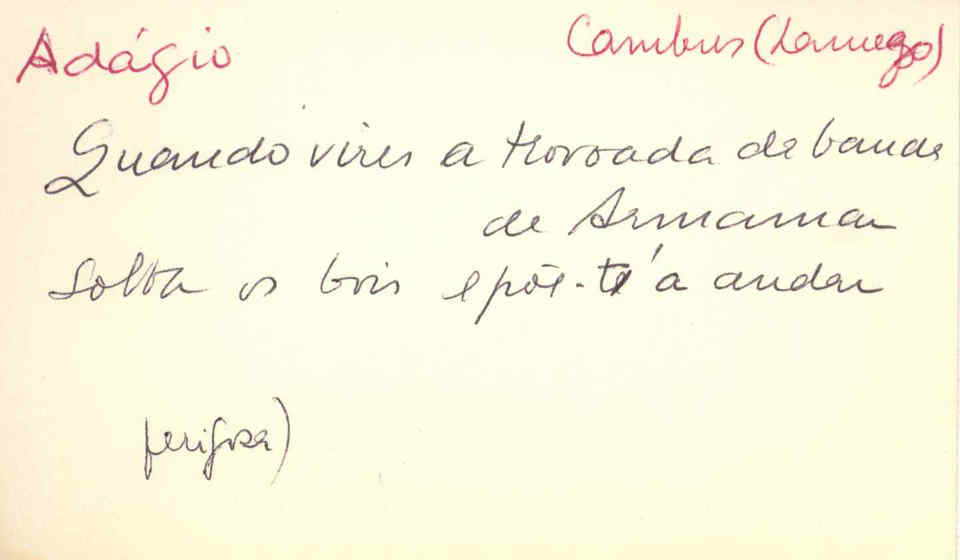 Adágio Cambres (Lamego)
Quando vires a trovoada da banda
de Armamar
Solta os bois e põe-t'a andar
perigosa)